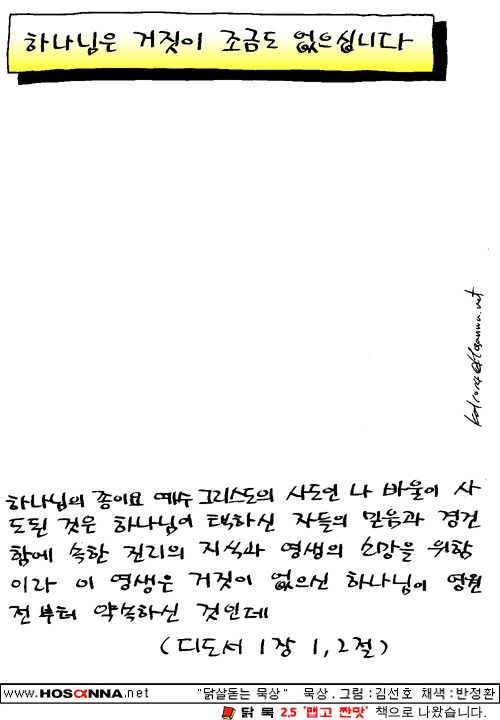 하나님은 거짓이 조금도 없으십니다
하나님의 종이요 예수 그리스도의 사도인 나 바울이 사
도된 것은 하나님이 택하신 자들의 믿음과 경건
함에 속한 진리의 지식과 영생의 소망을 위함
이라 이 영생은 거짓이 없으신 하나님이 영원
전부터 약속하신 것인데
(디도서 1장 1,2절)
www.HOSANNA.net "닭살돋는 묵상" 묵상.그림:김선호 채색:반정환
닭 묵 2.5 '맵고 짠맛' 책으로 나왔습니다.